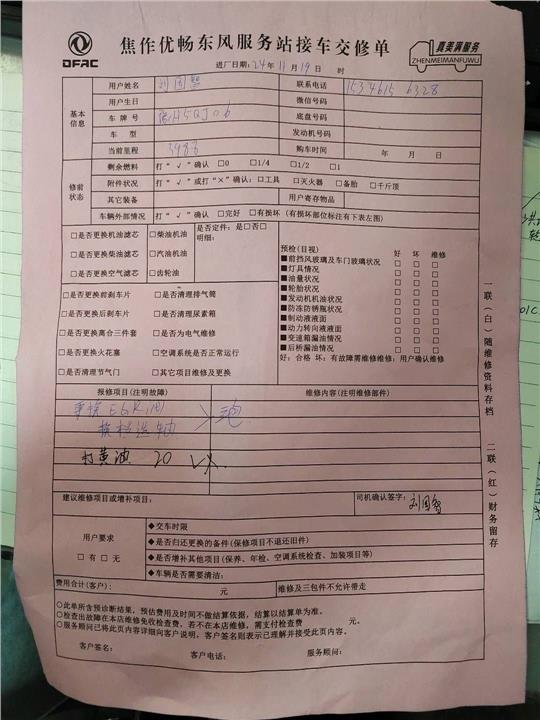 DFAC
焦作优畅东风服务站接车交修单
真美满服务
ZHENMEIMANFUWU
进厂日期：24年11月19日 时
基本信息
用户姓名 刘国智 联系电话
用户生日 微信号码
车牌号 底盘号码
车型 发动机号码
当前里程 3988 购车时间 年 月 日
修前状态
剩余燃料 打“√”确认 □0 □1/4 □1/2 □1
附件状况 打“√”或打“×”确认：□工具 □灭火器 □备胎 □千斤顶
其它装备 用户寄存物品
车辆外部情况 打“√”确认 □完好 □有损坏（有损坏部位标注有下表左图）
□是否更换机油滤芯 □柴油机油
□是否更换柴油滤芯 □汽油机油
□是否更换空气滤芯 □齿轮油
是否定件：是□否□
明细：
□是否更换前刹车片 □是否清理排气筒
□是否更换后刹车片 □是否清理尿素箱
□是否更换离合三件套 □是否为电气维修
□是否更换火花塞 □空调系统是否正常运行
□是否清理节气门 □其它项目维修及更换
预检（目视） 好 坏 维修
■前挡风玻璃及车门玻璃状况 □ □ □
■灯具情况 □ □ □
■油量状况 □ □ □
■轮胎状况 □ □ □
■发动机机油状况 □ □ □
■防冻防锈瓶状况 □ □ □
■制动液液面 □ □ □
■动力转向液液面 □ □ □
■变速箱漏油情况 □ □ □
■后桥漏油情况 □ □ □
好：合格 坏：有故障需维修维修：用户确认维修
报修项目（注明故障） 维修内容（注明维修部件）
EGR阀
打黄油 20
建议维修项目或增补项目： 司机确认签字：刘国智
用户要求
□有 □无
◆交车时限
◆是否归还更换的备件（保修项目不退还旧件）
◆是否增补其他项目（保养、年检、空调系统检查、加装项目等）
◆车辆是否需要清洁：
费用合计（客户）： 元 维修及三包件不允许带走
○此单所含预诊断结果，预估费用及时间不做结算依据，结算以结算单为准。
○检查出故障在本店维修免收检查费，若不在本店维修，需支付检查费 元。
○服务顾问已将此页内容详细向客户说明，客户签名则表示已理解并接受此页内容。
客户签名： 客户电话： 服务顾问：
一联（白）随维修资料存档
二联（红）财务留存